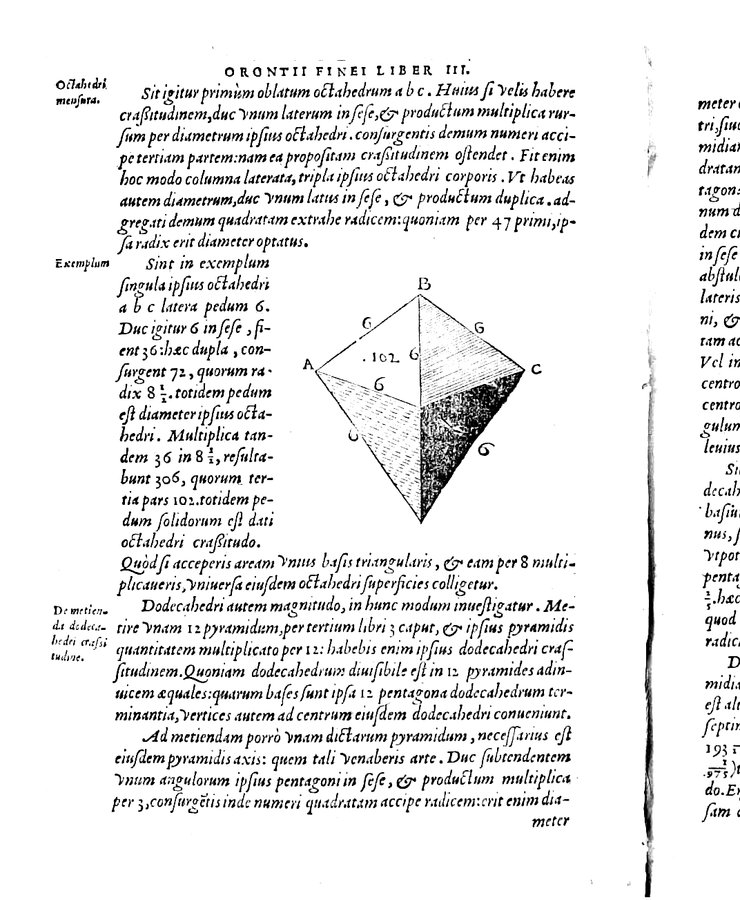 ORONTII FINEI LIBER III.
Octahedri
mensura.
Sit igitur primùm oblatum octahedrum a b c. Huius si velis habere
crassitudinem, duc vnum laterum in sese, & productum multiplica rur-
sum per diametrum ipsius octahedri. consurgentis demum numeri acci-
pe tertiam partem: nam ea propositam crassitudinem ostendet. Fit enim
hoc modo columna laterata, tripla ipsius octahedri corporis. Vt habeas
autem diametrum, duc vnum latus in sese, & productum duplica. ad-
gregati demum quadratam extrahe radicem: quoniam per 47 primi, ip-
sa radix erit diameter optatus.
Exemplum
Sint in exemplum
singula ipsius octahedri
a b c latera pedum 6.
Duc igitur 6 in sese, fi-
ent 36: hæc dupla, con-
surgent 72, quorum ra-
dix 8 1/2. totidem pedum
est diameter ipsius octa-
hedri. Multiplica tan-
dem 36 in 8 1/2, resulta-
bunt 306, quorum ter-
tia pars 102. totidem pe-
dum solidorum est dati
octahedri crassitudo.
B
6 6
A .102 6 C
6
6 6
Quòd si acceperis aream vnius basis triangularis, & eam per 8 multi-
plicaueris, vniuersa eiusdem octahedri superficies colligetur.
De metien-
da dodeca-
hedri crassi
tudine.
Dodecahedri autem magnitudo, in hunc modum inuestigatur. Me-
tire vnam 12 pyramidum, per tertium libri 3 caput, & ipsius pyramidis
quantitatem multiplicato per 12: habebis enim ipsius dodecahedri cras-
situdinem. Quoniam dodecahedrum diuisibile est in 12 pyramides adin-
uicem æquales: quarum bases sunt ipsa 12 pentagona dodecahedrum ter-
minantia, vertices autem ad centrum eiusdem dodecahedri conueniunt.
Ad metiendam porrò vnam dictarum pyramidum, necessarius est
eiusdem pyramidis axis: quem tali venaberis arte. Duc subtendentem
vnum angulorum ipsius pentagoni in sese, & productum multiplica
per 3, consurgẽtis inde numeri quadratam accipe radicem: erit enim dia-
meter
meter
tri, siue
midian
dratan
tagon
num d
dem ci
in sese
abstul
lateris
ni, &
tam ac
Vel in
centro
centro
gulum
leuius
Si
decah
basiu
nus, s
vtpot
penta
hæc
quod
radic
D
midia
est alt
septin
193
975)
do. Er
sam